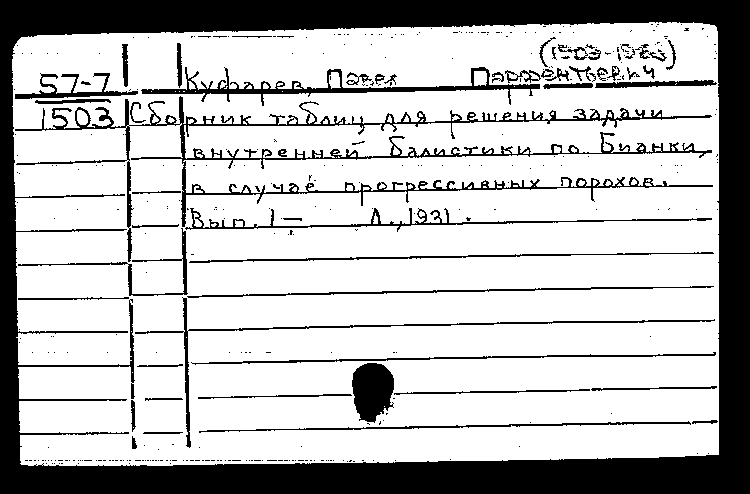 57-7
1503
Куфарев, Павел Парфентьевич
Сборник таблиц для решения задачи
внутренней балистики по Бианки,
в случае прогрессивных порохов.
Вып. 1— Л., 1931.